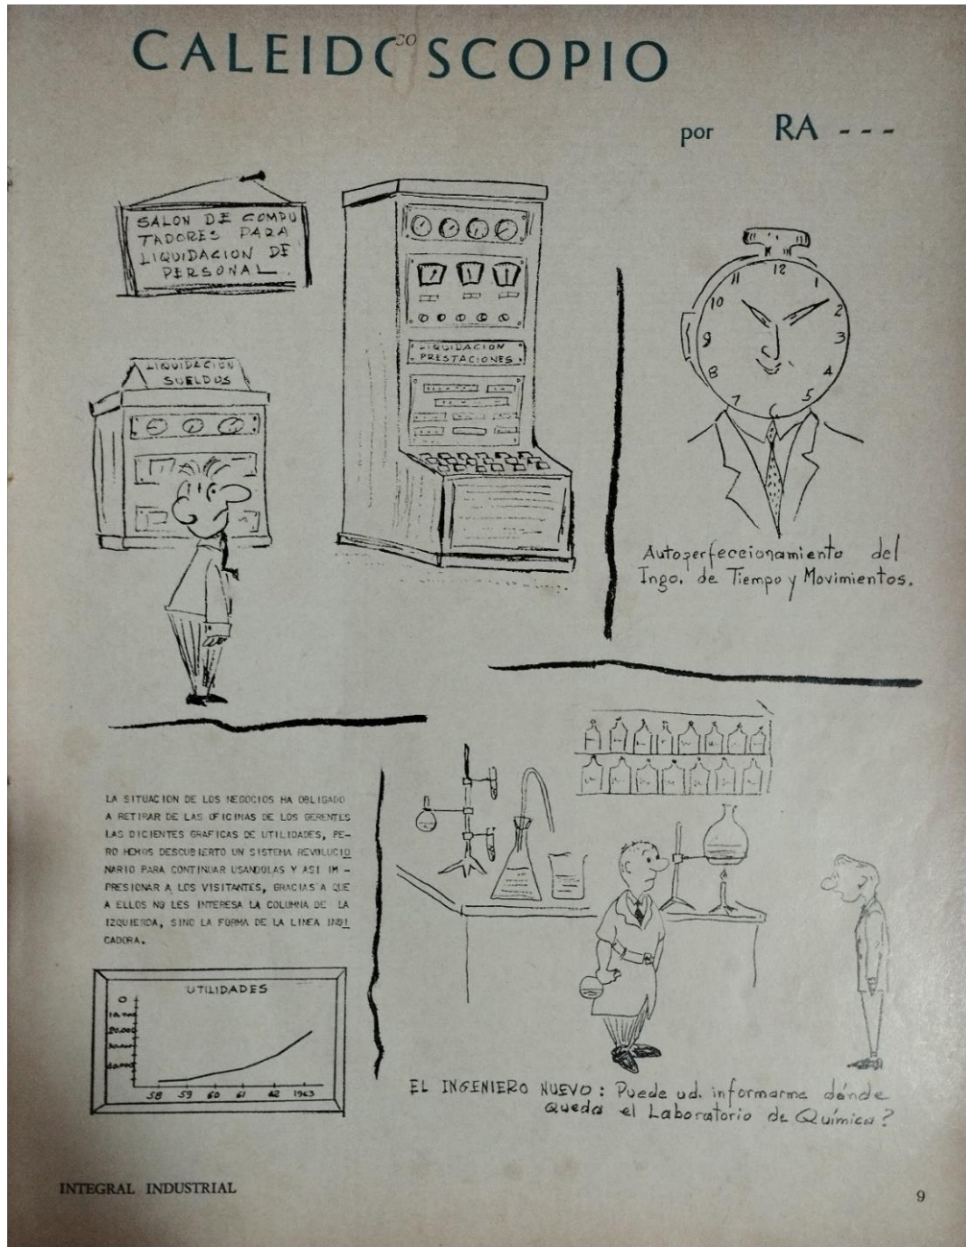 CALEIDOSCOPIO
CO
por RA - - -
SALON DE COMPU
TADORES PARA
LIQUIDACION DE
PERSONAL
LIQUIDACION
SUELDOS
LIQUIDACION
PRESTACIONES
12
1
2
3
4
5
6
7
8
9
10
11
Autoperfeccionamiento del
Ingo. de Tiempo y Movimientos.
LA SITUACION DE LOS NEGOCIOS HA OBLIGADO
A RETIRAR DE LAS OFICINAS DE LOS GERENTES
LAS DICIENTES GRAFICAS DE UTILIDADES, PE-
RO HEMOS DESCUBIERTO UN SISTEMA REVOLUCIO
NARIO PARA CONTINUAR USANDOLAS Y ASI IM -
PRESIONAR A LOS VISITANTES, GRACIAS A QUE
A ELLOS NO LES INTERESA LA COLUMNA DE LA
IZQUIERDA, SINO LA FORMA DE LA LINEA INDI
CADORA.
UTILIDADES
0
20.000
58 59 60 61 62 1963
EL INGENIERO NUEVO: Puede ud. informarme dónde
queda el Laboratorio de Química?
INTEGRAL INDUSTRIAL
9